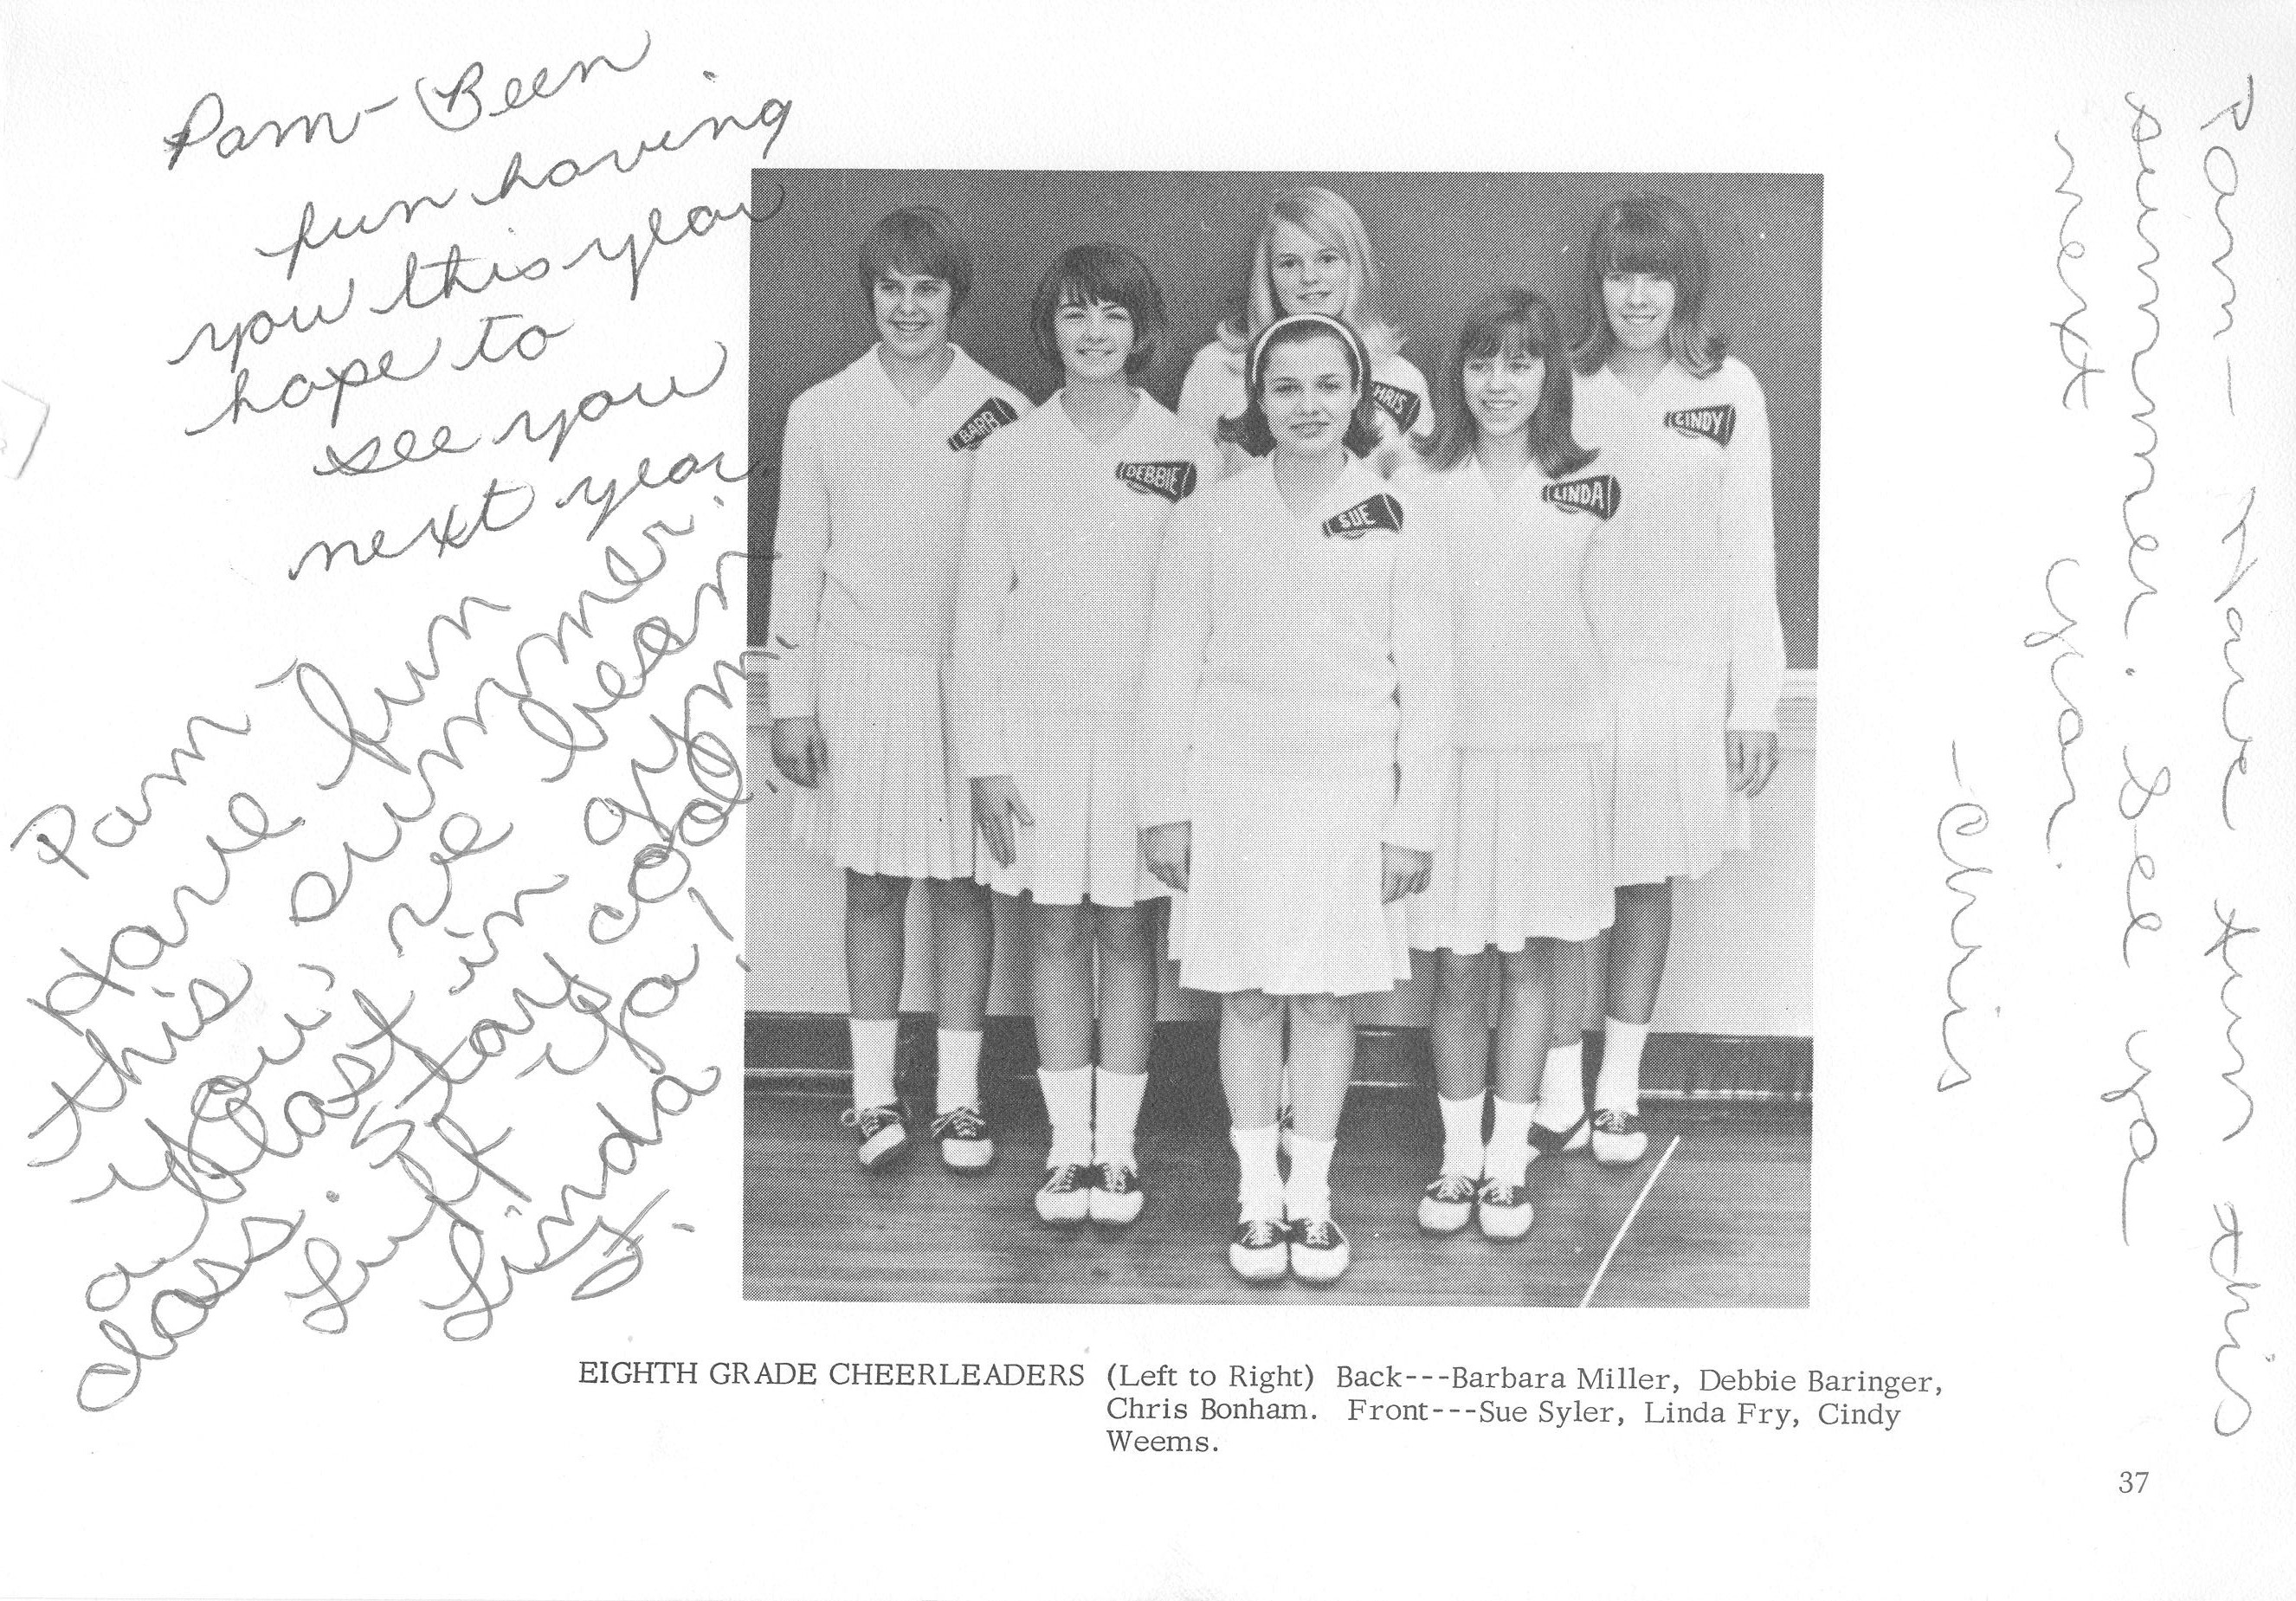 Pam- Been
fun having
you this year
hope to
see you
next year.
Pam-
Have fun
this summer.
You've been
a blast in gym
class. Stay cool.
Luf ya!
Linda
F.
BARB
DEBBIE
HRIS
SUE
LINDA
CINDY
Pam- Have fun this
summer. See ya
next year.
-Chris
EIGHTH GRADE CHEERLEADERS (Left to Right) Back---Barbara Miller, Debbie Baringer,
Chris Bonham. Front---Sue Syler, Linda Fry, Cindy
Weems.
37